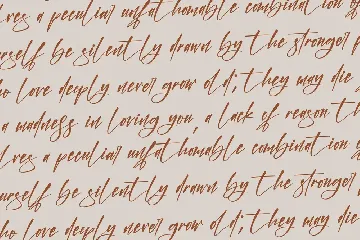 res a peculiar unfathomable combination
urself be silently drawn by the stronger
ho love deeply never grow old; they may die
a madness in loving you, a lack of reason th
lves a peculiar unfathomable combination
urself be silently drawn by the stronger
ho love deeply never grow old; they may die